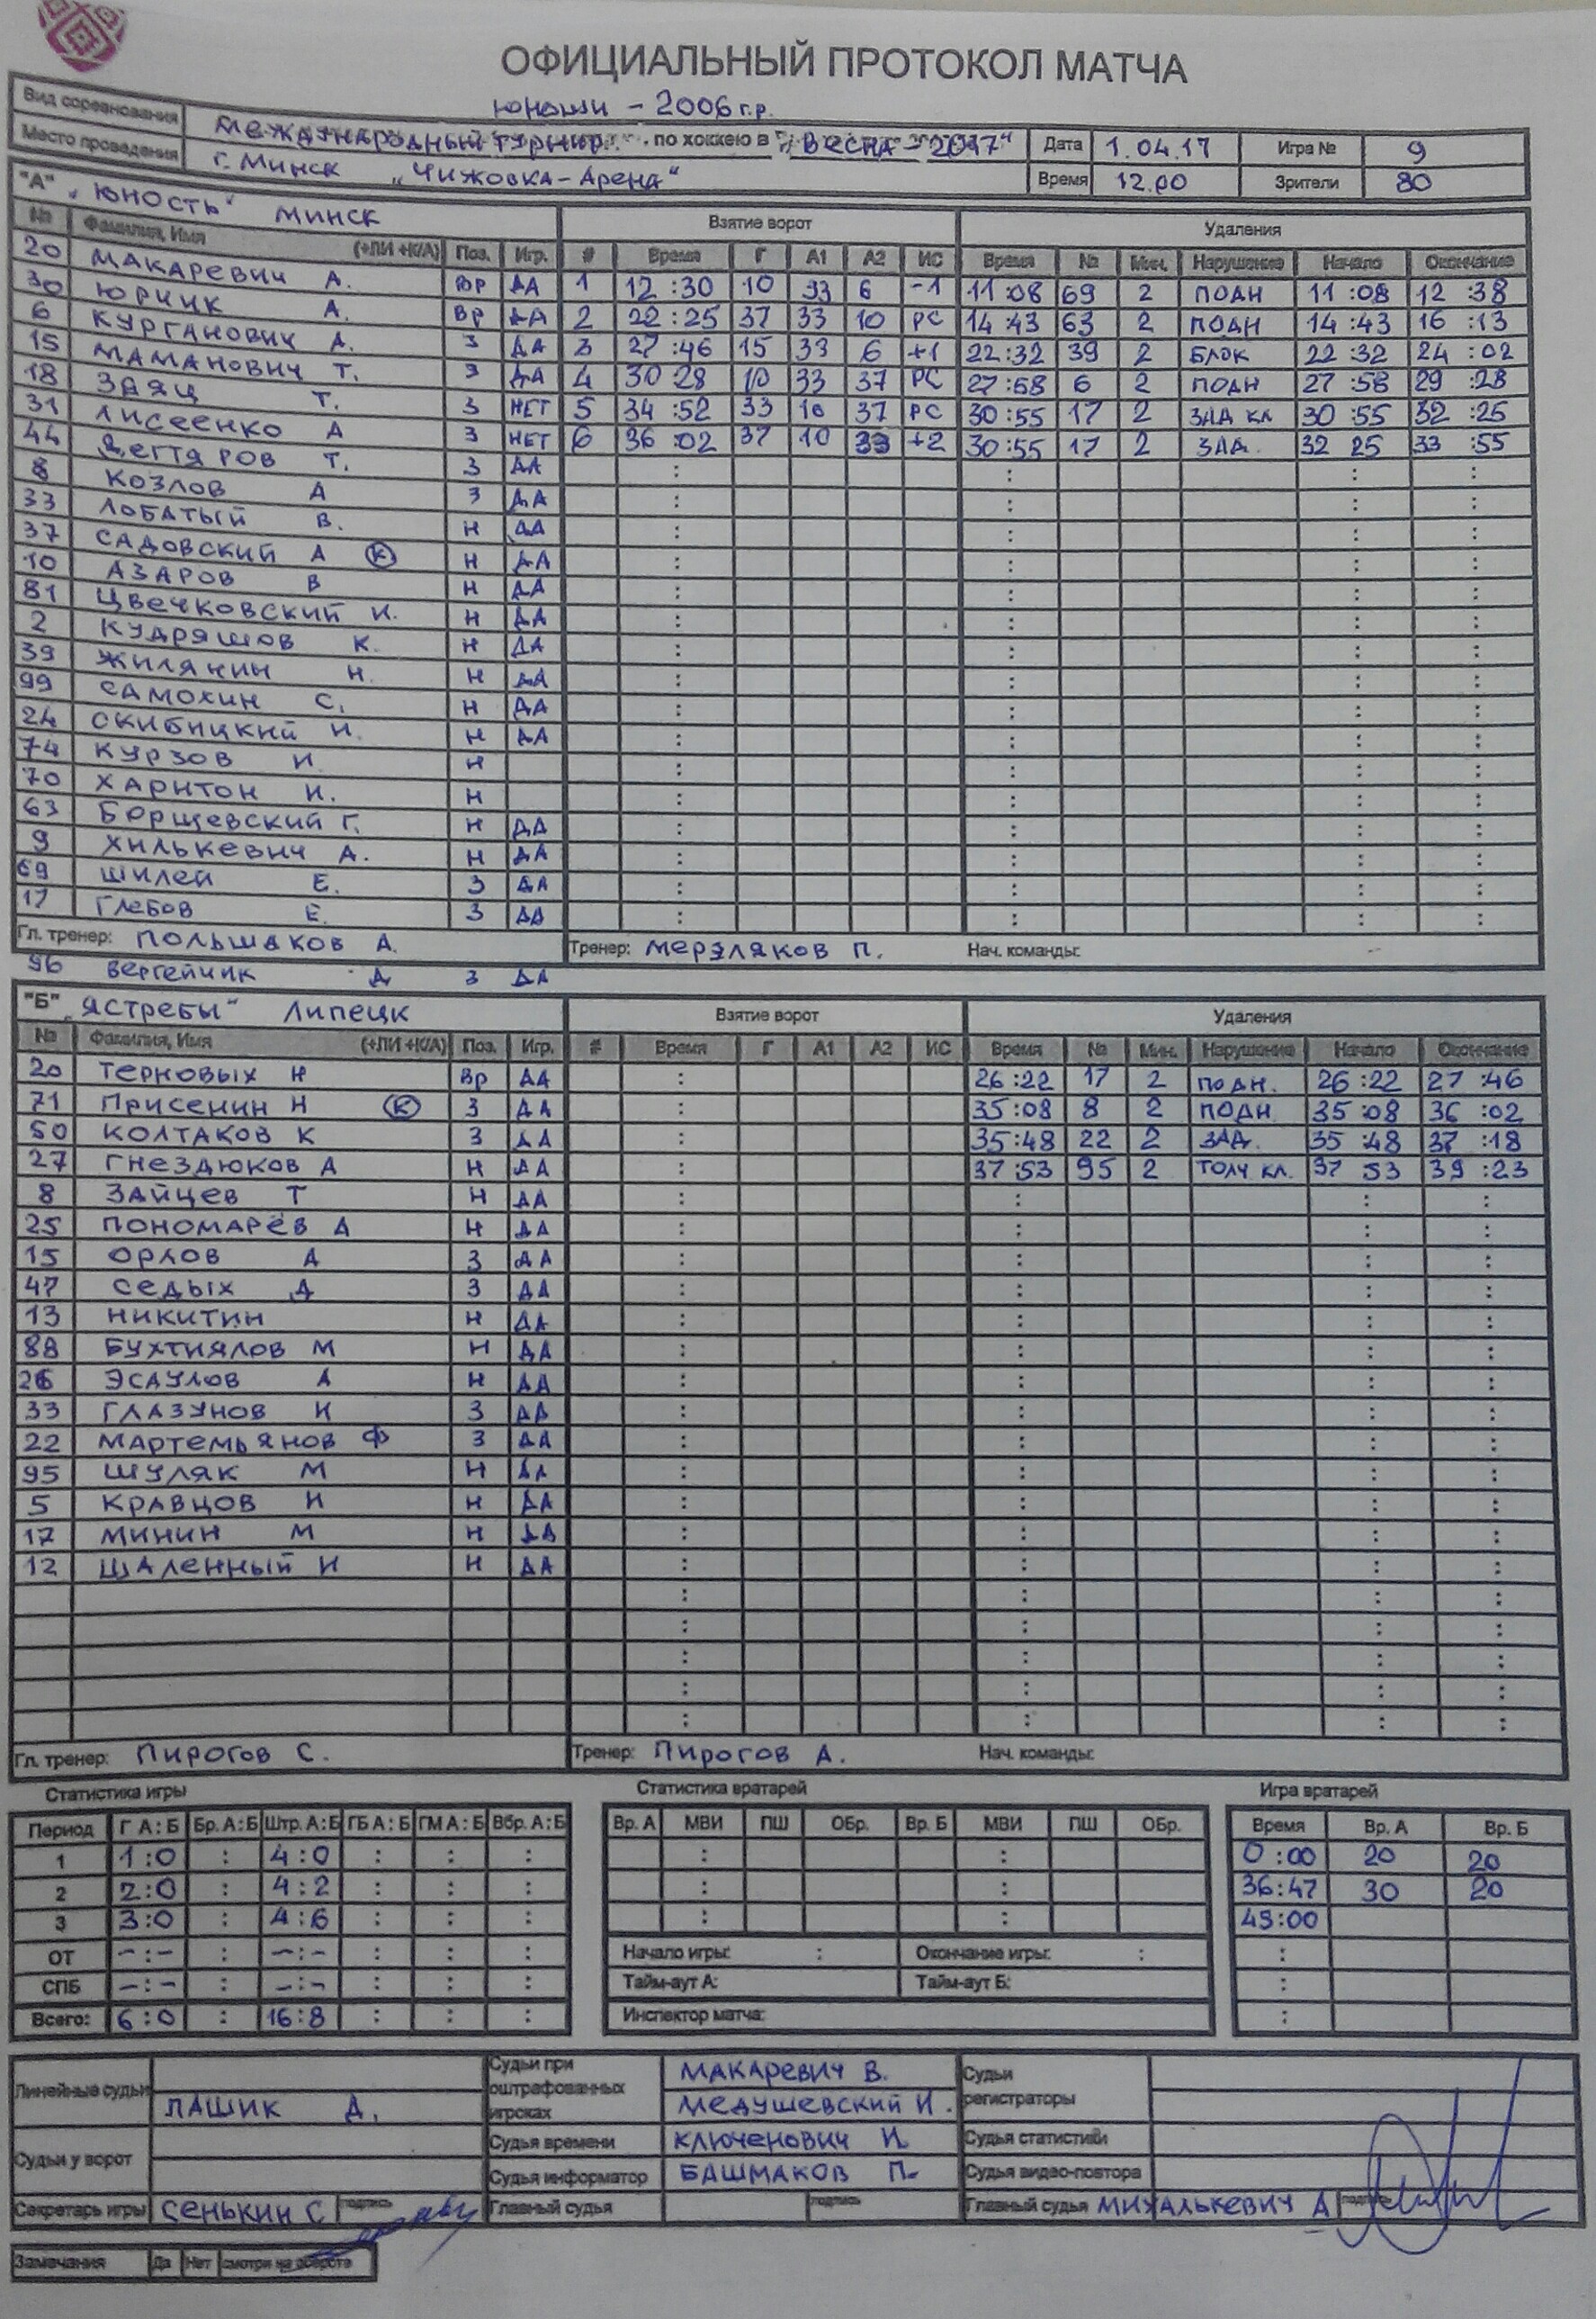 ОФИЦИАЛЬНЫЙ ПРОТОКОЛ МАТЧА
юноши - 2006 г.р.
Вид соревнования Международный турнир по хоккею в "Весна - 2017" Дата 1.04.17 Игра № 9
Место проведения г. Минск "Чижовка-Арена" Время 12.00 Зрители 80
"А" "Юность" Минск Взятие ворот Удаления
№ Фамилия, Имя (+ЛИ +К/А) Поз. Игр. # Время Г А1 А2 ИС Время № Мин. Нарушение Начало Окончание
20 Макаревич А. Вр ДА 1 12:30 10 33 6 -1 11:08 69 2 ПОДН 11:08 12:38
30 Юрчик А. Вр ДА 2 22:25 37 33 10 РС 14:43 63 2 ПОДН 14:43 16:13
6 Курганович А. З ДА 3 27:46 15 33 6 +1 22:32 39 2 БЛОК 22:32 24:02
15 Маманович Т. З ДА 4 30 28 10 33 37 РС 27:58 6 2 ПОДН 27:58 29:28
18 Заяц Т. З НЕТ 5 34:52 33 10 37 РС 30:55 17 2 ЗАД КЛ 30:55 32:25
31 Лисеенко А З НЕТ 6 36:02 37 10 33 +2 30:55 17 2 ЗАД. 32 25 33:55
44 Дегтяров Т. З ДА
8 Козлов А З ДА
33 Лобатый В. Н ДА
37 Садовский А (К) Н ДА
10 Азаров В Н ДА
81 Цвечковский И. Н ДА
2 Кудряшов К. Н ДА
39 Жилякин Н. Н ДА
99 Самохин С. Н ДА
24 Скибицкий И. Н ДА
74 Курзов И. Н
70 Харитон И. Н
63 Борщевский Г. Н ДА
9 Хилькевич А. Н ДА
69 Шилей Е. З ДА
17 Глебов Е. З ДА
Гл. тренер: Польшаков А. Тренер: Мерзляков П. Нач. команды:
96 Вергейчик Д З ДА
"Б" "Ястребы" Липецк Взятие ворот Удаления
№ Фамилия, Имя (+ЛИ +К/А) Поз. Игр. # Время Г А1 А2 ИС Время № Мин. Нарушение Начало Окончание
20 Терновых Н Вр ДА 26:22 17 2 ПОДН. 26:22 27:46
71 Присенин Н (К) З ДА 35:08 8 2 ПОДН 35:08 36:02
50 Колтаков К З ДА 35:48 22 2 ЗАД. 35:48 37:18
27 Гнездюков А Н ДА 37:53 95 2 ТОЛЧ КЛ. 37 53 39:23
8 Зайцев Т Н ДА
25 Пономарёв А Н ДА
15 Орлов А З ДА
47 Седых Д З ДА
13 Никитин Н ДА
88 Бухтиялов М Н ДА
26 Эсаулов А Н ДА
33 Глазунов И З ДА
22 Мартемьянов Ф З ДА
95 Шуляк М Н ДА
5 Кравцов И Н ДА
17 Минин М Н ДА
12 Шаленный И Н ДА
Гл. тренер: Пирогов С. Тренер: Пирогов А. Нач. команды:
Статистика игры Статистика вратарей Игра вратарей
Период Г А:Б Бр. А:Б Штр. А:Б ГБ А:Б ГМ А:Б Вбр. А:Б Вр. А МВИ ПШ ОБр. Вр. Б МВИ ПШ ОБр. Время Вр. А Вр. Б
1 1:0 : 4:0 : : : 0:00 20 20
2 2:0 : 4:2 : : : 36:47 30 20
3 3:0 : 4:6 : : : 45:00
ОТ -:- : -:- : : : Начало игры: : Окончание игры: :
СПБ -:- : -:- : : : Тайм-аут А: Тайм-аут Б:
Всего: 6:0 : 16:8 : : : Инспектор матча:
Линейные судьи Лашик Д. Судьи при оштрафованных игроках Макаревич В. Судьи регистраторы
Медушевский И.
Судьи у ворот Судья времени Ключенович И. Судья статистики
Судья информатор Башмаков П. Судья видео-повтора
Секретарь игры Сенькин С подпись Главный судья подпись Главный судья Михалькевич А подпись
Замечания Да Нет смотри на обороте